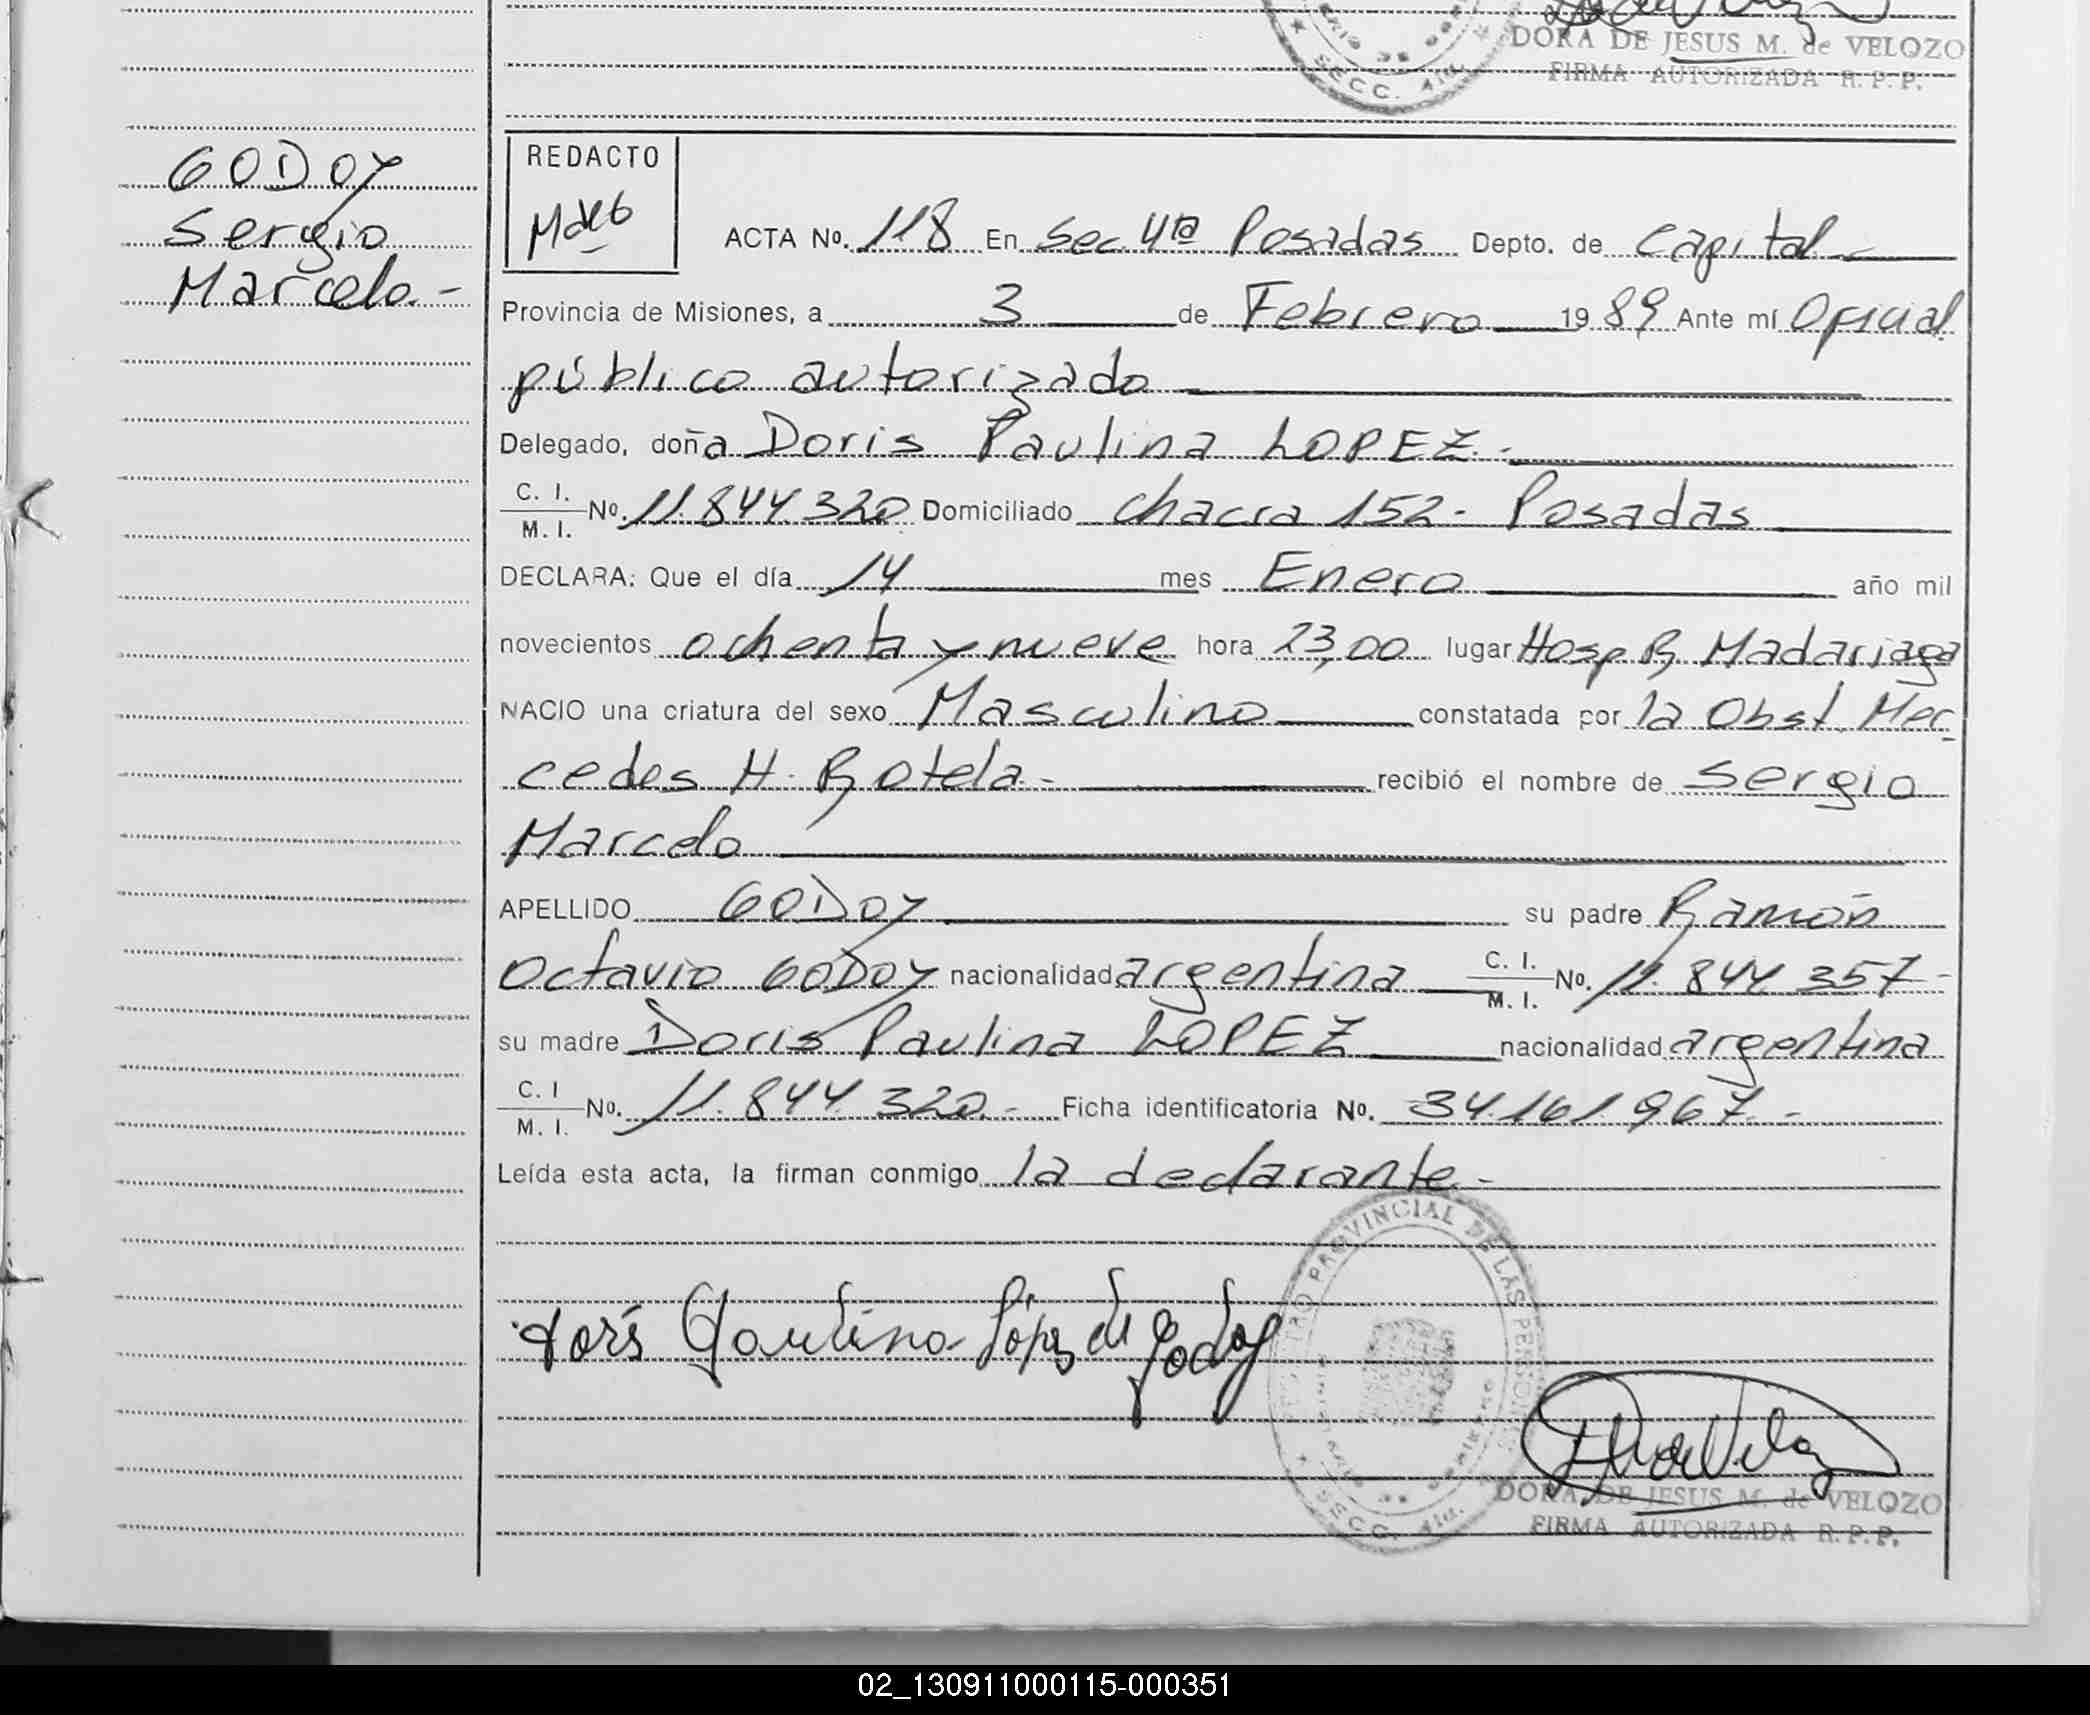 DORA DE JESUS M. de VELOZO
SECC. 4ta.
FIRMA AUTORIZADA R. P. P.
GODOY
Sergio
Marcelo.-
REDACTO
ACTA Nº. 118 En Sec. 4ta Posadas Depto. de Capital.-
Provincia de Misiones, a 3 de Febrero 1989 Ante mí Oficial
público autorizado
Delegado, doña Doris Paulina LOPEZ.-
C. I. / M. I. Nº. 11.844.320 Domiciliado Chacra 152.- Posadas
DECLARA: Que el día 14 mes Enero año mil
novecientos ochenta y nueve hora 23,00 lugar Hosp R. Madariaga
NACIO una criatura del sexo Masculino constatada por la Obst. Mer
cedes H. Rotela.- recibió el nombre de Sergio
Marcelo
APELLIDO GODOY su padre Ramón
Octavio GODOY nacionalidad argentina C. I. / M. I. Nº. 11.844.357-
su madre Doris Paulina LOPEZ nacionalidad argentina
C. I / M. I. Nº. 11.844.320.- Ficha identificatoria Nº. 34.161.967.-
Leída esta acta, la firman conmigo la declarante.-
PROVINCIAL DE LAS PERSONAS
Doris Paulina López de Godoy
DORA DE JESUS M. de VELOZO
SECC. 4ta.
FIRMA AUTORIZADA R. P. P.
02_130911000115-000351